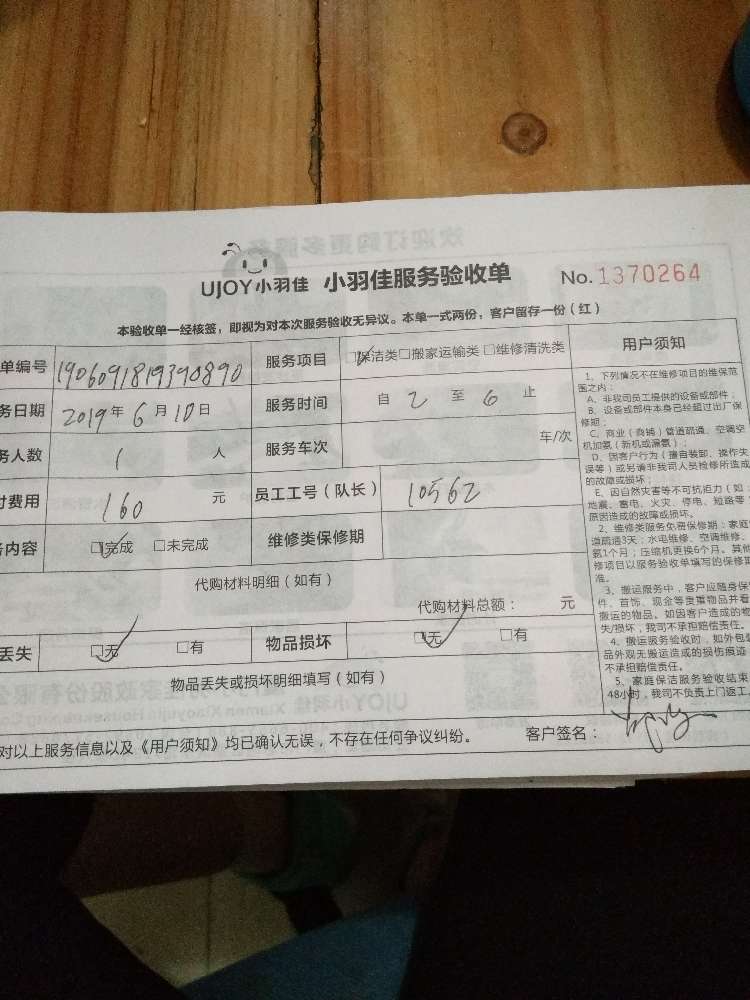 UJOY小羽佳 小羽佳服务验收单 No.1370264
本验收单一经核签，即视为对本次服务验收无异议。本单一式两份，客户留存一份（红）
单编号 1906091819390890 服务项目 ☑保洁类□搬家运输类□维修清洗类 用户须知
务日期 2019年6月10日 服务时间 自 2 至 6 止
务人数 1 人 服务车次 车/次
付费用 160 元 员工工号（队长） 10562
务内容 ☑完成 □未完成 维修类保修期
代购材料明细（如有）
代购材料总额： 元
丢失 ☑无 □有 物品损坏 ☑无 □有
物品丢失或损坏明细填写（如有）
对以上服务信息以及《用户须知》均已确认无误，不存在任何争议纠纷。 客户签名：
1、下列情况不在维修项目的维保范
围之内：
A、非我司员工提供的设备或部件；
B、设备或部件本身已经超过出厂保
修期；
C、商业（商铺）管道疏通、空调空
机加氨（新机或漏氨）；
D、因客户行为（擅自装卸、操作失
误等）或另请非我司人员检修所造成
的故障或损坏；
E、因自然灾害等不可抗拒力（如：
地震、雷电、火灾、停电、短路等
原因造成的故障或损坏。
2、维修类服务免费保修期：家庭
道疏通3天；水电维修、空调维修、
氨1个月；压缩机更换6个月。其他
修项目以服务验收单填写的保修期
准。
3、搬运服务中，客户应随身保
件、首饰、现金等贵重物品并看
搬运的物品。如因客户造成的物
失/损坏，我司不承担赔偿责任。
4、搬运服务验收时，如外包装
品外观无搬运造成的损伤痕迹
不承担赔偿责任。
5、家庭保洁服务验收结束
48小时，我司不负责上门返工。